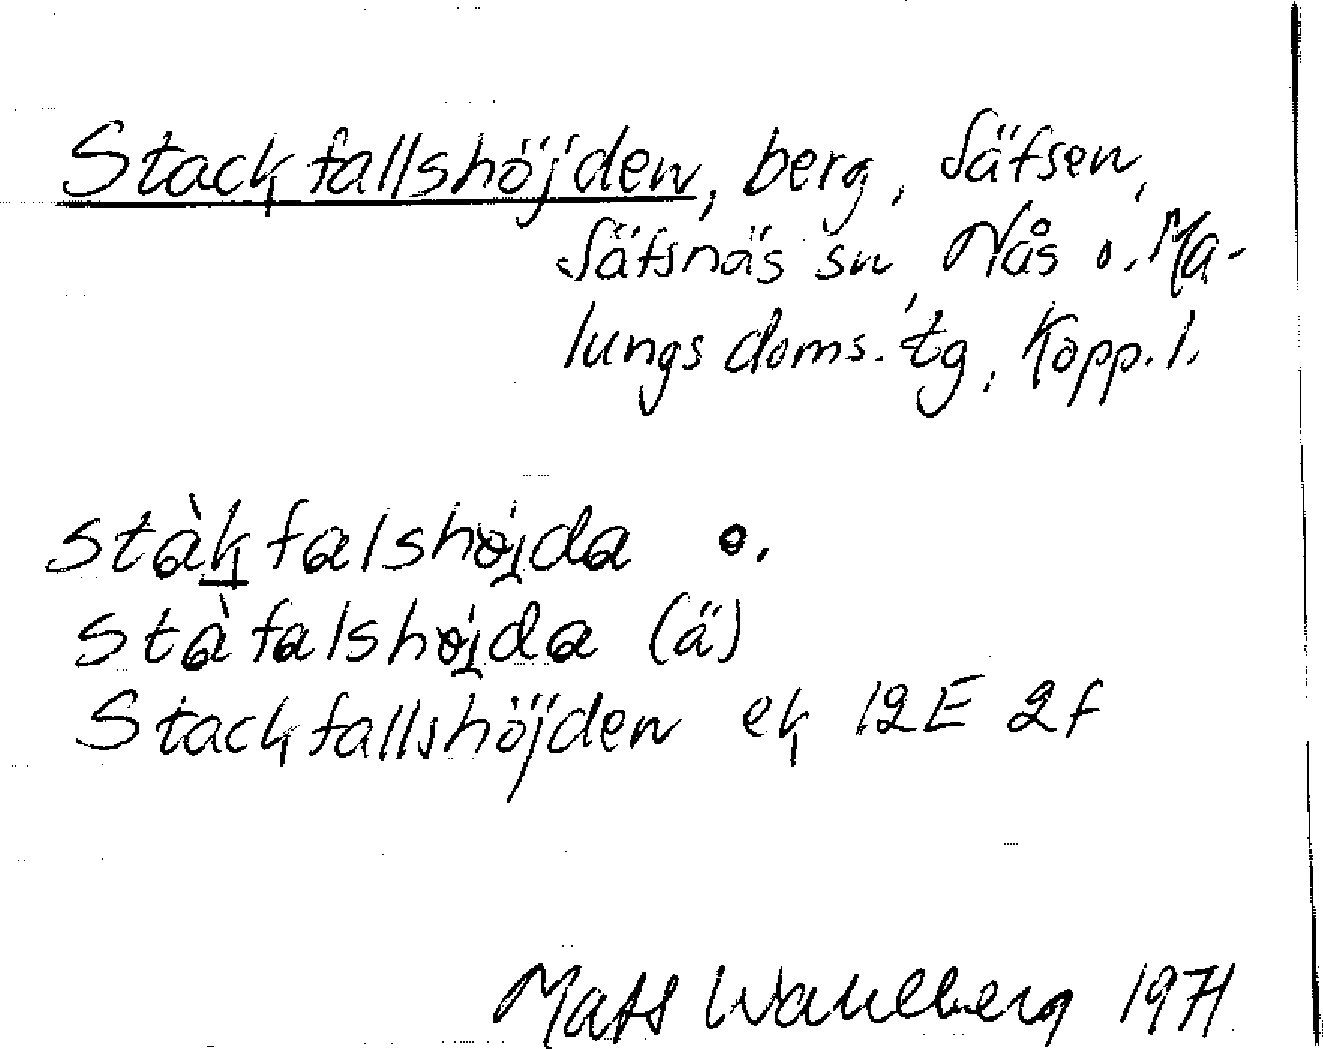 Stackfallshöjden, berg, Säfsen,
Säfsnäs sn, Nås o. Ma-
lungs doms. tg, Kopp. l.
stàkfalshøjda o.
stàfalshøjda (ä)
Stackfallshöjden ek 12E 2f
Mats Wahlberg 1971